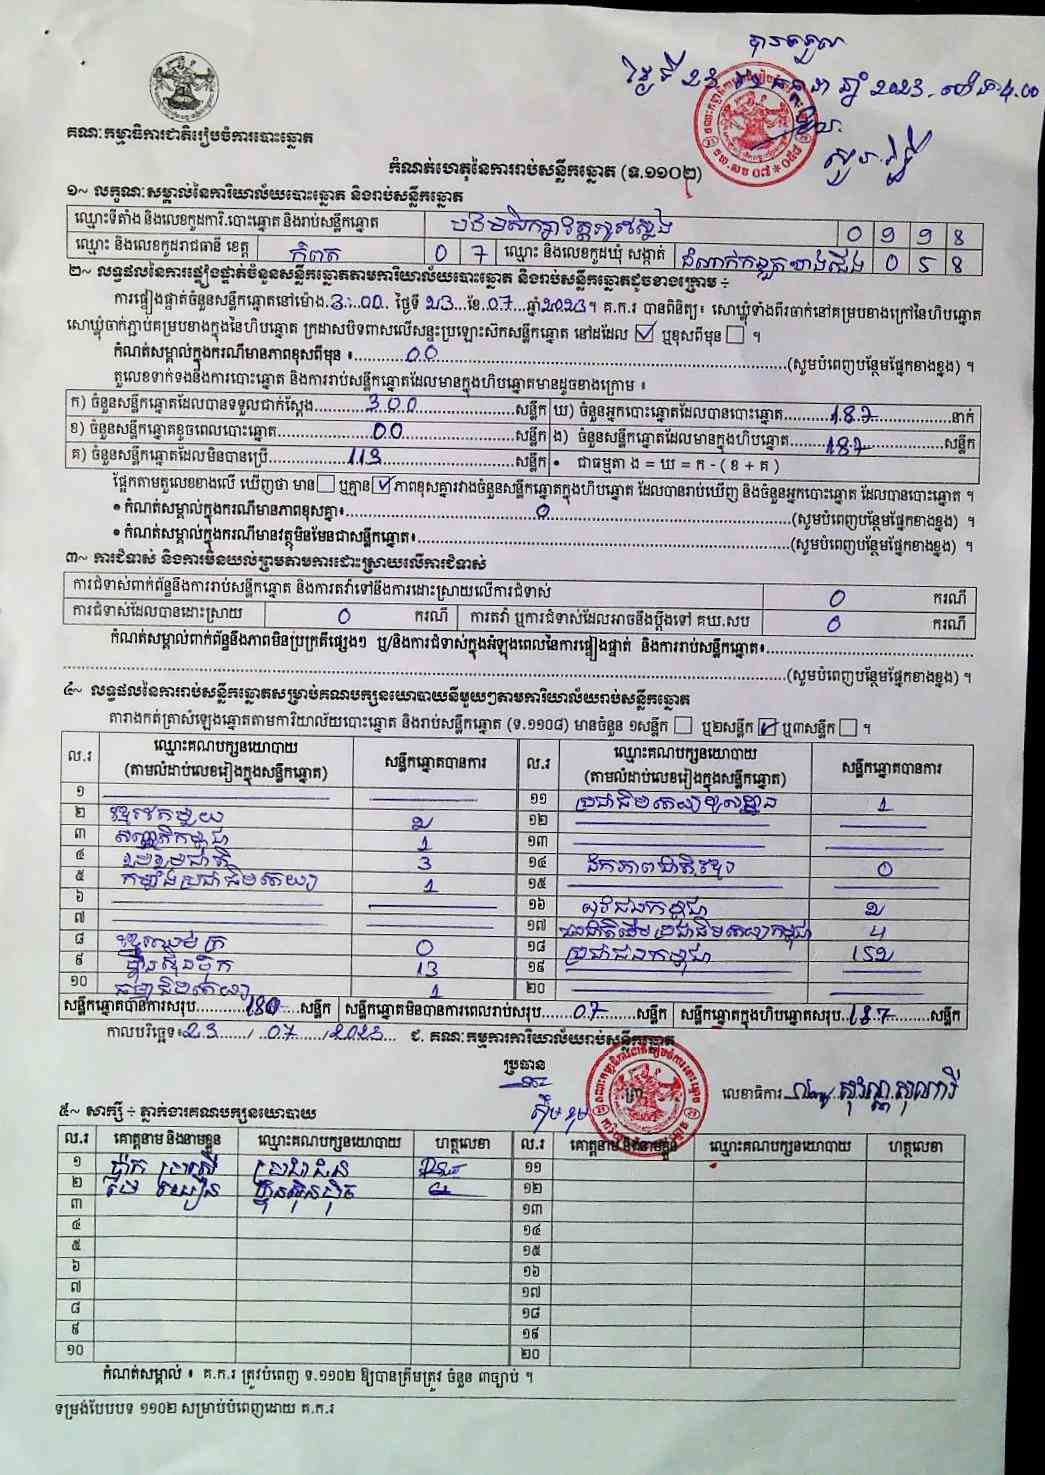 បានទទួល
ថ្ងៃទី 23 ឆ្នាំ 2023
គណៈកម្មាធិការជាតិរៀបចំការបោះឆ្នោត
កំណត់ហេតុនៃការរាប់សន្លឹកឆ្នោត (ទ.១១០២)
១~ លក្ខណៈសម្គាល់នៃការិយាល័យបោះឆ្នោត និងរាប់សន្លឹកឆ្នោត
ឈ្មោះទីតាំង និងលេខកូដការិ.បោះឆ្នោត និងរាប់សន្លឹកឆ្នោត
ឈ្មោះ និងលេខកូដរាជធានី ខេត្ត កំពត 0 7 ឈ្មោះ និងលេខកូដឃុំ សង្កាត់ ដំណាក់កន្ទួតខាងជើង
២~ លទ្ធផលនៃការផ្ទៀងផ្ទាត់ចំនួនសន្លឹកឆ្នោតតាមការិយាល័យបោះឆ្នោត និងរាប់សន្លឹកឆ្នោតដូចខាងក្រោម ÷
ការផ្ទៀងផ្ទាត់ចំនួនសន្លឹកឆ្នោតនៅម៉ោង 3:00 ថ្ងៃទី 23 ខែ 07 ឆ្នាំ 2023។ គ.ក.រ បានពិនិត្យ៖ សោឃ្លុំទាំងពីរចាក់នៅគម្របខាងក្រៅនៃហិបឆ្នោត
សោឃ្លុំចាក់ភ្ជាប់គម្របខាងក្នុងនៃហិបឆ្នោត ក្រដាសបិទពាសលើសន្ទះប្រឡោះស៊កសន្លឹកឆ្នោត នៅដដែល ☑ ឬខុសពីមុន ☐ ។
កំណត់សម្គាល់ក្នុងករណីមានភាពខុសពីមុន ៖ 00 (សូមបំពេញបន្ថែមផ្នែកខាងខ្នង) ។
តួលេខទាក់ទងនឹងការបោះឆ្នោត និងការរាប់សន្លឹកឆ្នោតដែលមានក្នុងហិបឆ្នោតមានដូចខាងក្រោម ៖
ក) ចំនួនសន្លឹកឆ្នោតដែលបានទទួលជាក់ស្តែង 300 សន្លឹក ឃ) ចំនួនអ្នកបោះឆ្នោតដែលបានបោះឆ្នោត 187 នាក់
ខ) ចំនួនសន្លឹកឆ្នោតខូចពេលបោះឆ្នោត 00 សន្លឹក ង) ចំនួនសន្លឹកឆ្នោតដែលមានក្នុងហិបឆ្នោត 187 សន្លឹក
គ) ចំនួនសន្លឹកឆ្នោតដែលមិនបានប្រើ 113 សន្លឹក • ជាធម្មតា ង = ឃ = ក - ( ខ + គ )
ផ្អែកតាមតួលេខខាងលើ ឃើញថា មាន ☐ ឬគ្មាន ☑ ភាពខុសគ្នារវាងចំនួនសន្លឹកឆ្នោតក្នុងហិបឆ្នោត ដែលបានរាប់ឃើញ និងចំនួនអ្នកបោះឆ្នោត ដែលបានបោះឆ្នោត ។
• កំណត់សម្គាល់ក្នុងករណីមានភាពខុសគ្នា៖ 0 (សូមបំពេញបន្ថែមផ្នែកខាងខ្នង) ។
• កំណត់សម្គាល់ក្នុងករណីមានវត្ថុមិនមែនជាសន្លឹកឆ្នោត៖ (សូមបំពេញបន្ថែមផ្នែកខាងខ្នង) ។
៣~ ការជំទាស់ និងការមិនយល់ព្រមតាមការដោះស្រាយលើការជំទាស់
ការជំទាស់ពាក់ព័ន្ធនឹងការរាប់សន្លឹកឆ្នោត និងការតវ៉ាទៅនឹងការដោះស្រាយលើការជំទាស់ 0 ករណី
ការជំទាស់ដែលបានដោះស្រាយ 0 ករណី ការតវ៉ា ឬការជំទាស់ដែលអាចនឹងប្តឹងទៅ គឃ.សប 0 ករណី
កំណត់សម្គាល់ពាក់ព័ន្ធនឹងភាពមិនប្រក្រតីផ្សេងៗ ឬ/និងការជំទាស់ក្នុងអំឡុងពេលនៃការផ្ទៀងផ្ទាត់ និងការរាប់សន្លឹកឆ្នោត៖
(សូមបំពេញបន្ថែមផ្នែកខាងខ្នង) ។
៤~ លទ្ធផលនៃការរាប់សន្លឹកឆ្នោតសម្រាប់គណបក្សនយោបាយនីមួយៗតាមការិយាល័យរាប់សន្លឹកឆ្នោត
តារាងកត់ត្រាសំឡេងឆ្នោតតាមការិយាល័យបោះឆ្នោត និងរាប់សន្លឹកឆ្នោត (ទ.១១០៨) មានចំនួន ១សន្លឹក ☐ ឬ២សន្លឹក ☑ ឬ៣សន្លឹក ☐ ។
ល.រ ឈ្មោះគណបក្សនយោបាយ (តាមលំដាប់លេខរៀងក្នុងសន្លឹកឆ្នោត) សន្លឹកឆ្នោតបានការ ល.រ ឈ្មោះគណបក្សនយោបាយ (តាមលំដាប់លេខរៀងក្នុងសន្លឹកឆ្នោត) សន្លឹកឆ្នោតបានការ
១ ១១ 1
២ ខ្មែរតែមួយ 2 ១២
៣ 1 ១៣
៤ 3 ១៤ ឯកភាពជាតិខ្មែរ 0
៥ កម្លាំងប្រជាធិបតេយ្យ 1 ១៥
៦ ១៦ យុវជនកម្ពុជា 2
៧ ១៧ 4
៨ 0 ១៨ ប្រជាជនកម្ពុជា 152
៩ ហ្វ៊ុនស៊ិនប៉ិច 13 ១៩
១០ ធម្មាធិបតេយ្យ 1 ២០
សន្លឹកឆ្នោតបានការសរុប 180 សន្លឹក សន្លឹកឆ្នោតមិនបានការពេលរាប់សរុប 07 សន្លឹក សន្លឹកឆ្នោតក្នុងហិបឆ្នោតសរុប 187 សន្លឹក
កាលបរិច្ឆេទ៖ 23 / 07 / 2023 ជ. គណៈកម្មការការិយាល័យរាប់សន្លឹកឆ្នោត
ប្រធាន
លេខាធិការ
៥~ សាក្សី ÷ ភ្នាក់ងារគណបក្សនយោបាយ
ល.រ គោត្តនាម និងនាមខ្លួន ឈ្មោះគណបក្សនយោបាយ ហត្ថលេខា ល.រ គោត្តនាម និងនាមខ្លួន ឈ្មោះគណបក្សនយោបាយ ហត្ថលេខា
១ ប្រជាជន ១១
២ ហ្វ៊ុនស៊ិនប៉ិច ១២
៣ ១៣
៤ ១៤
៥ ១៥
៦ ១៦
៧ ១៧
៨ ១៨
៩ ១៩
១០ ២០
កំណត់សម្គាល់ ៖ គ.ក.រ ត្រូវបំពេញ ទ.១១០២ ឱ្យបានត្រឹមត្រូវ ចំនួន ៣ច្បាប់ ។
ទម្រង់បែបបទ ១១០២ សម្រាប់បំពេញដោយ គ.ក.រ